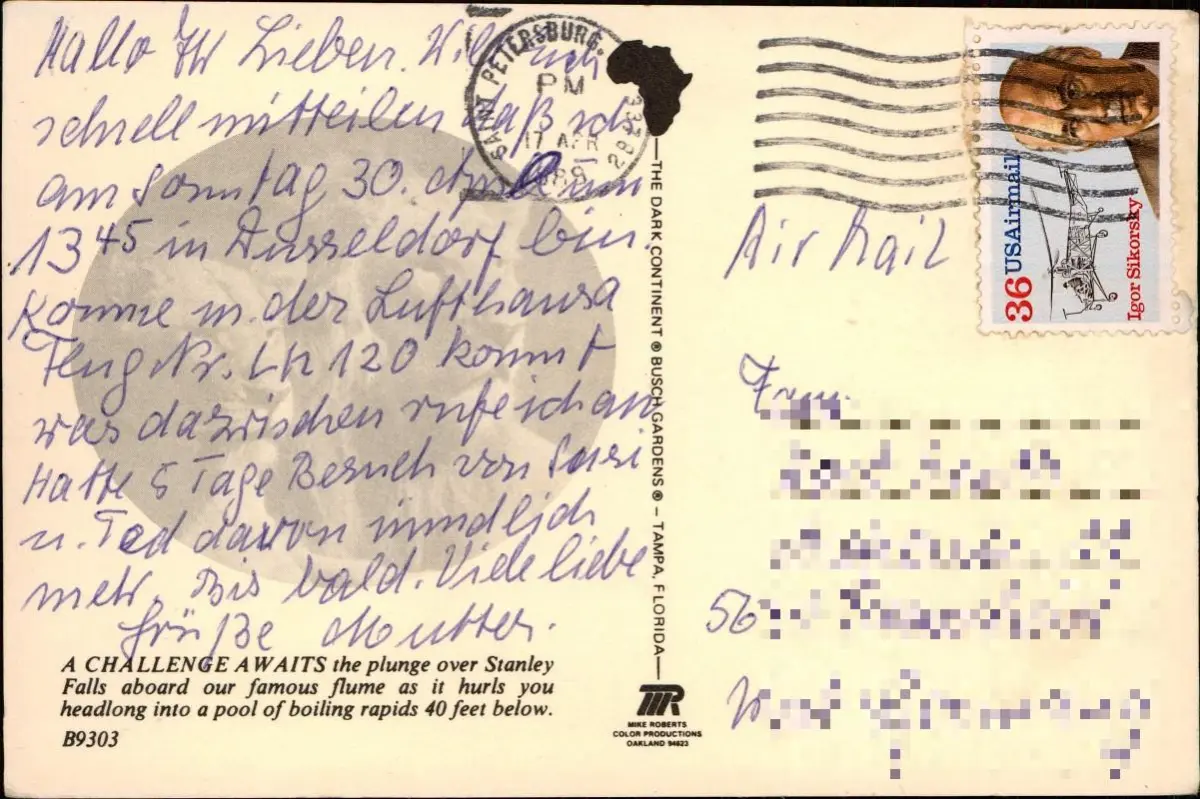 Hallo Ihr Lieben. Will Euch
schnell mitteilen daß ich
am Sonntag 30. April um
13 45 in Düsseldorf bin.
Komme m. der Lufthansa
Flug Nr. LH 120 kommt
was dazwischen rufe ich an
Hatte 5 Tage Besuch von Susi
u. Ted davon mündlich
mehr. Bis bald. Viele liebe
Grüße Mutter.
A CHALLENGE AWAITS the plunge over Stanley
Falls aboard our famous flume as it hurls you
headlong into a pool of boiling rapids 40 feet below.
B9303
SAINT PETERSBURG,
PM
17 APR
THE DARK CONTINENT ® BUSCH GARDENS ® – TAMPA, FLORIDA
MIKE ROBERTS
COLOR PRODUCTIONS
OAKLAND 94623
36 USAirmail
Igor Sikorsky
Air Mail
56
West Germany